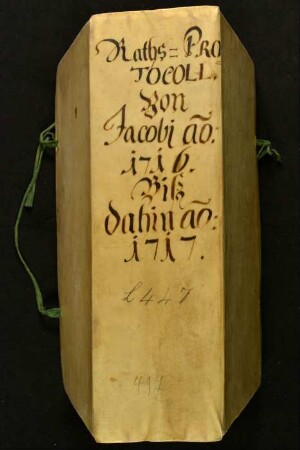 Raths = PRO
TOCOLL.
Von
Jacobi aō:
1716.
Biß
dahin aō:
1717.
L 447